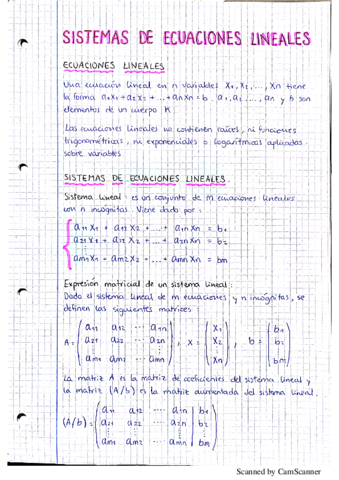 SISTEMAS DE ECUACIONES LINEALES
ECUACIONES LINEALES
Una ecuación lineal en n variables X₁, X₂, ..., Xn tiene
la forma a₁X₁ + a₂X₂ + ... + anXn = b . a₁, a₂, ..., an y b son
elementos de un cuerpo K.
Las ecuaciones lineales no contienen raíces, ni funciones
trigonométricas, ni exponenciales o logarítmicas aplicadas
sobre variables.
SISTEMAS DE ECUACIONES LINEALES.
Sistema lineal: es un conjunto de m ecuaciones lineales
con n incógnitas. Viene dado por:
a₁₁X₁ + a₁₁X₂ + ... + a₁nXn = b₁
a₂₁X₁ + a₂₂X₂ + ... + a₂nXn = b₂
am₁X₁ + am₂X₂ + ... + amnXn = bm
Expresión matricial de un sistema lineal:
Dado el sistema lineal de m ecuaciones y n incógnitas, se
definen las siguientes matrices:
a₁₁ a₁₂ ... a₁n X₁ b₁
A = a₂₁ a₂₂ ... a₂n , X = X₂ , b = b₂
am₁ am₂ ... amn Xn bm
La matriz A es la matriz de coeficientes del sistema lineal y
la matriz (A/b) es la matriz aumentada del sistema lineal.
a₁₁ a₁₂ ... a₁n b₁
(A/b) = a₂₁ a₂₂ ... a₂n b₂
am₁ am₂ ... amn bm
Scanned by CamScanner